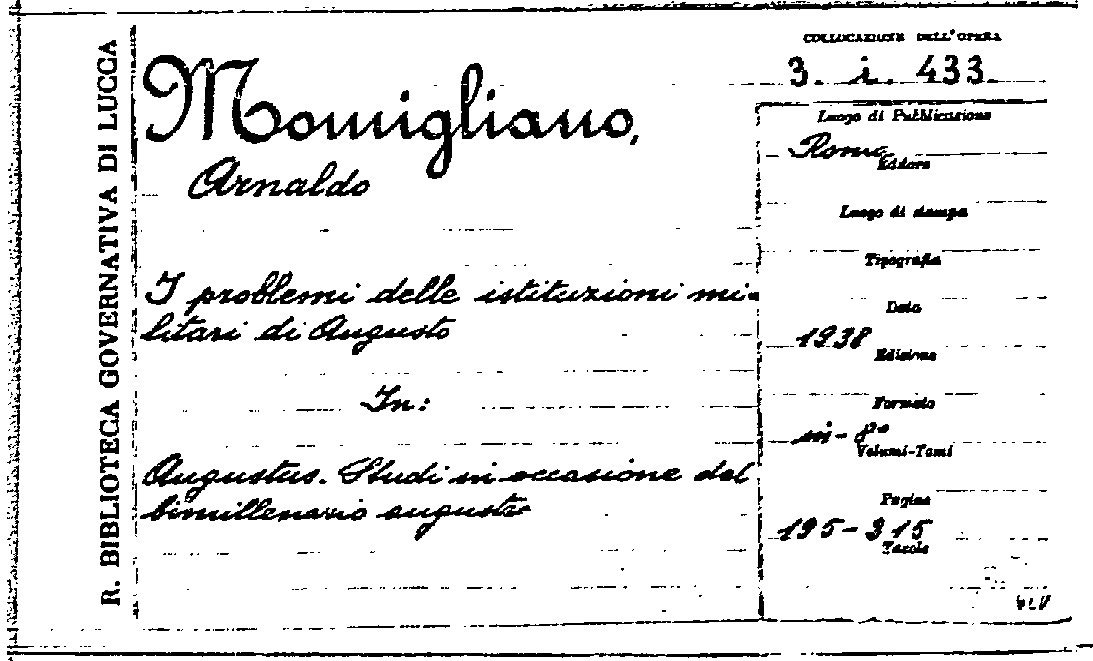 R. BIBLIOTECA GOVERNATIVA DI LUCCA
Momigliano,
Arnaldo
I problemi delle istituzioni mi-
litari di Augusto
In:
Augustus. Studi in occasione del
bimillenario augusteo
COLLOCAZIONE DELL'OPERA
3. i. 433.
Luogo di Pubblicazione
Roma
Editore
Luogo di stampa
Tipografia
Data
1938
Edizione
Formato
in-8º
Volumi-Tomi
Pagine
195-315
Tavole